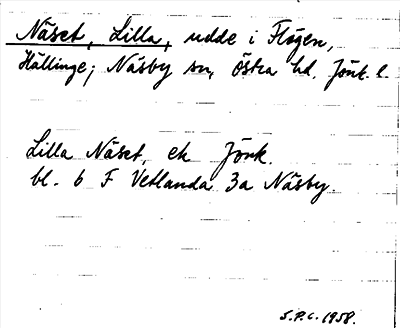 Näset, Lilla, udde i Flögen,
Hällinge; Näsby sn, Östra hd. Jönk. l.
Lilla Näset, ek Jönk.
bl. 6 F Vetlanda 3a Näsby.
S.P.C. 1958.